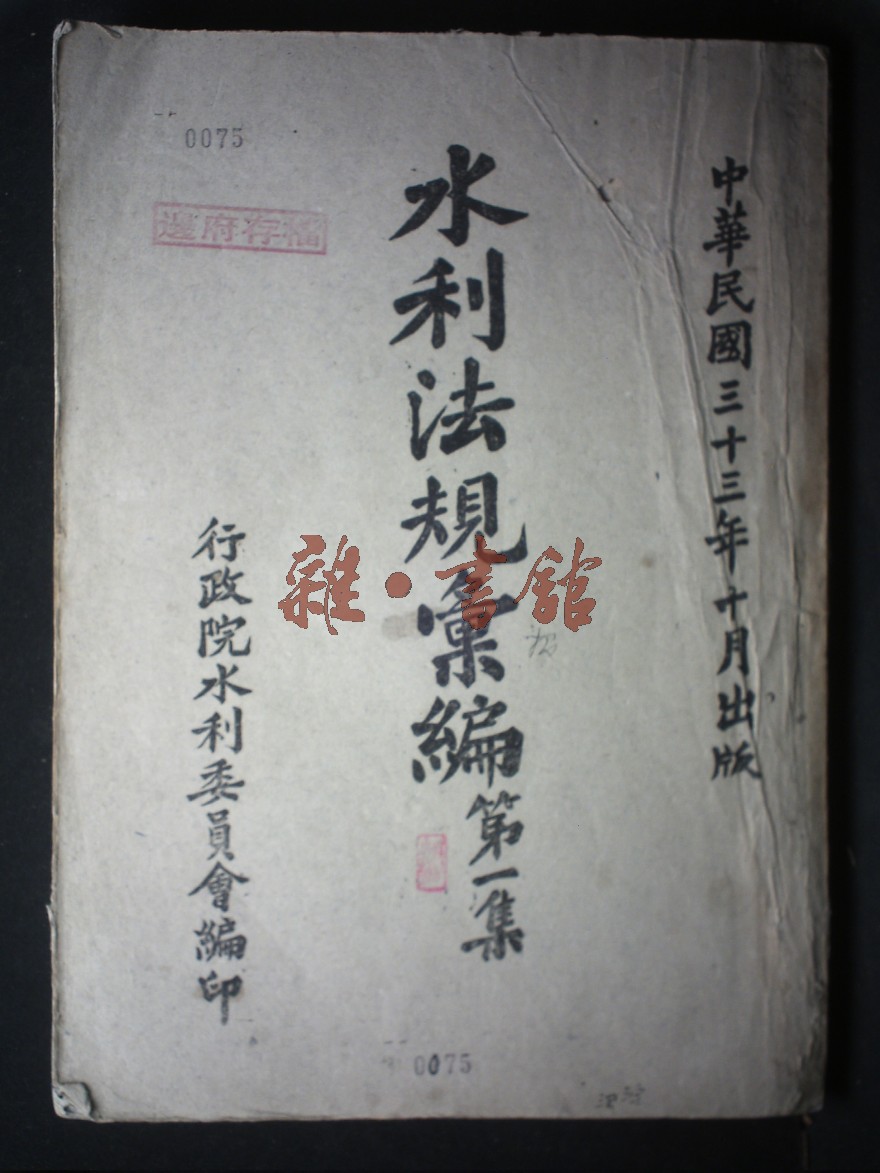 中華民國三十三年十月出版
水利法規彙編
第一集
行政院水利委員會編印
0075
邊府存檔
雜·書館
0075